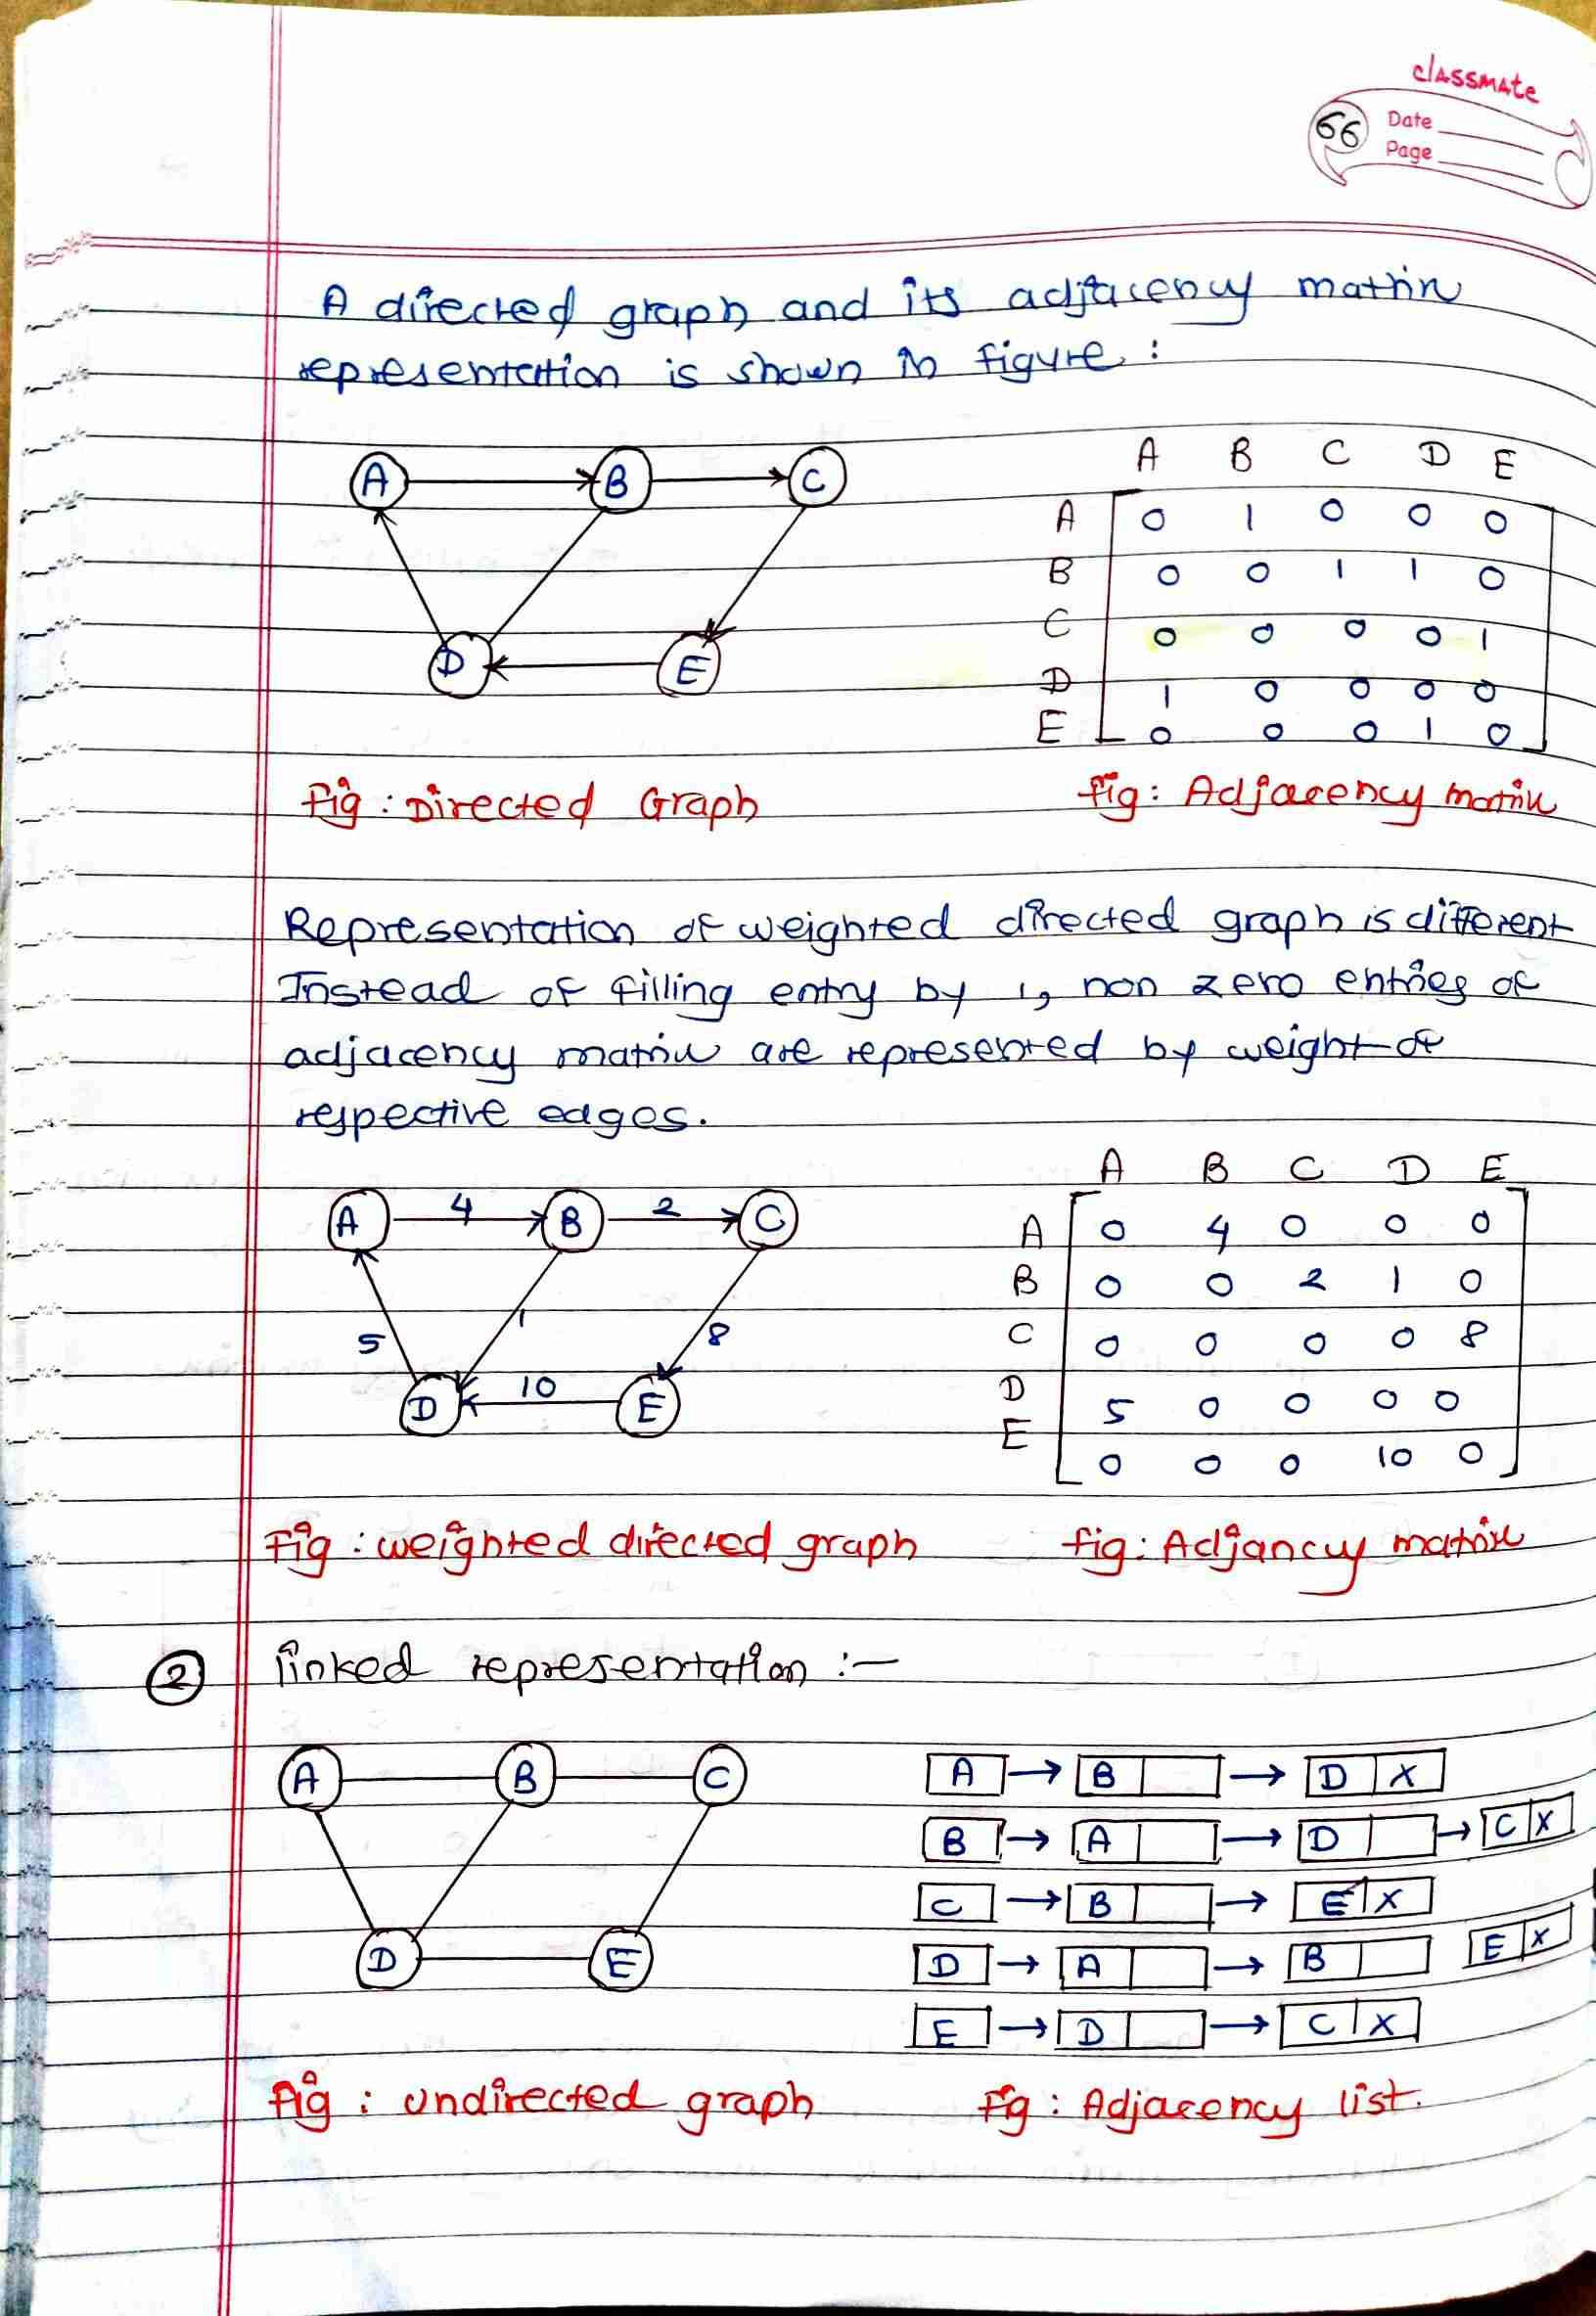 classmate
66
Date
Page
A directed graph and its adjacency matrix
representation is shown in figure :
A B C
D E
A B C D E
A 0 1 0 0 0
B 0 0 1 1 0
C 0 0 0 0 1
D 1 0 0 0 0
E 0 0 0 1 0
Fig : Directed Graph
fig : Adjacency matrix
Representation of weighted directed graph is different
Instead of filling entry by 1, non zero entries of
adjacency matrix are represented by weight of
respective edges.
A 4 B 2 C
5 1 8
D 10 E
A B C D E
A 0 4 0 0 0
B 0 0 2 1 0
C 0 0 0 0 8
D 5 0 0 0 0
E 0 0 0 10 0
Fig : weighted directed graph
fig : Adjancy matrix
② linked representation :-
A B C
D E
A → B → D X
B → A → D → C X
C → B → E X
D → A → B E X
E → D → C X
Fig : undirected graph
Fig : Adjacency list.